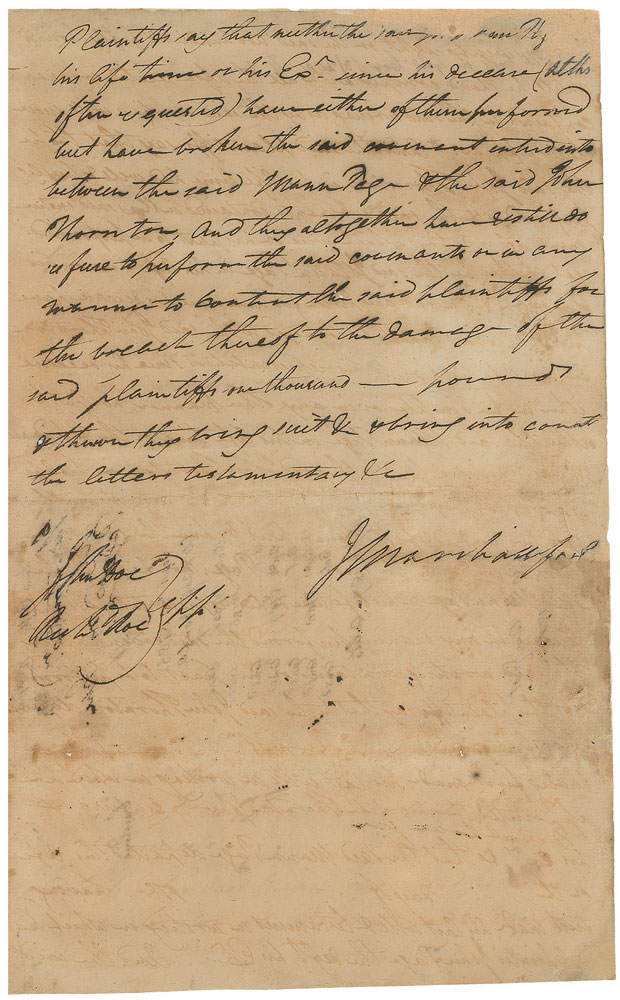 Plaintiffs say that neither the said in
his life time or his Exr. since his decease (altho
often requested) have either of them performed
but have broken the said covenant entered into
between the said Mann Page & the said John
Thornton, and they altogether have & still do
refuse to perform the said covenants or in any
manner to content the said plaintiffs for
the breach thereof to the damage of the
said plaintiffs one thousand — pounds
& therefore they bring suit & & bring into court
the letters testamentary &c
J Marshall for
John Doe
Richd. Roe